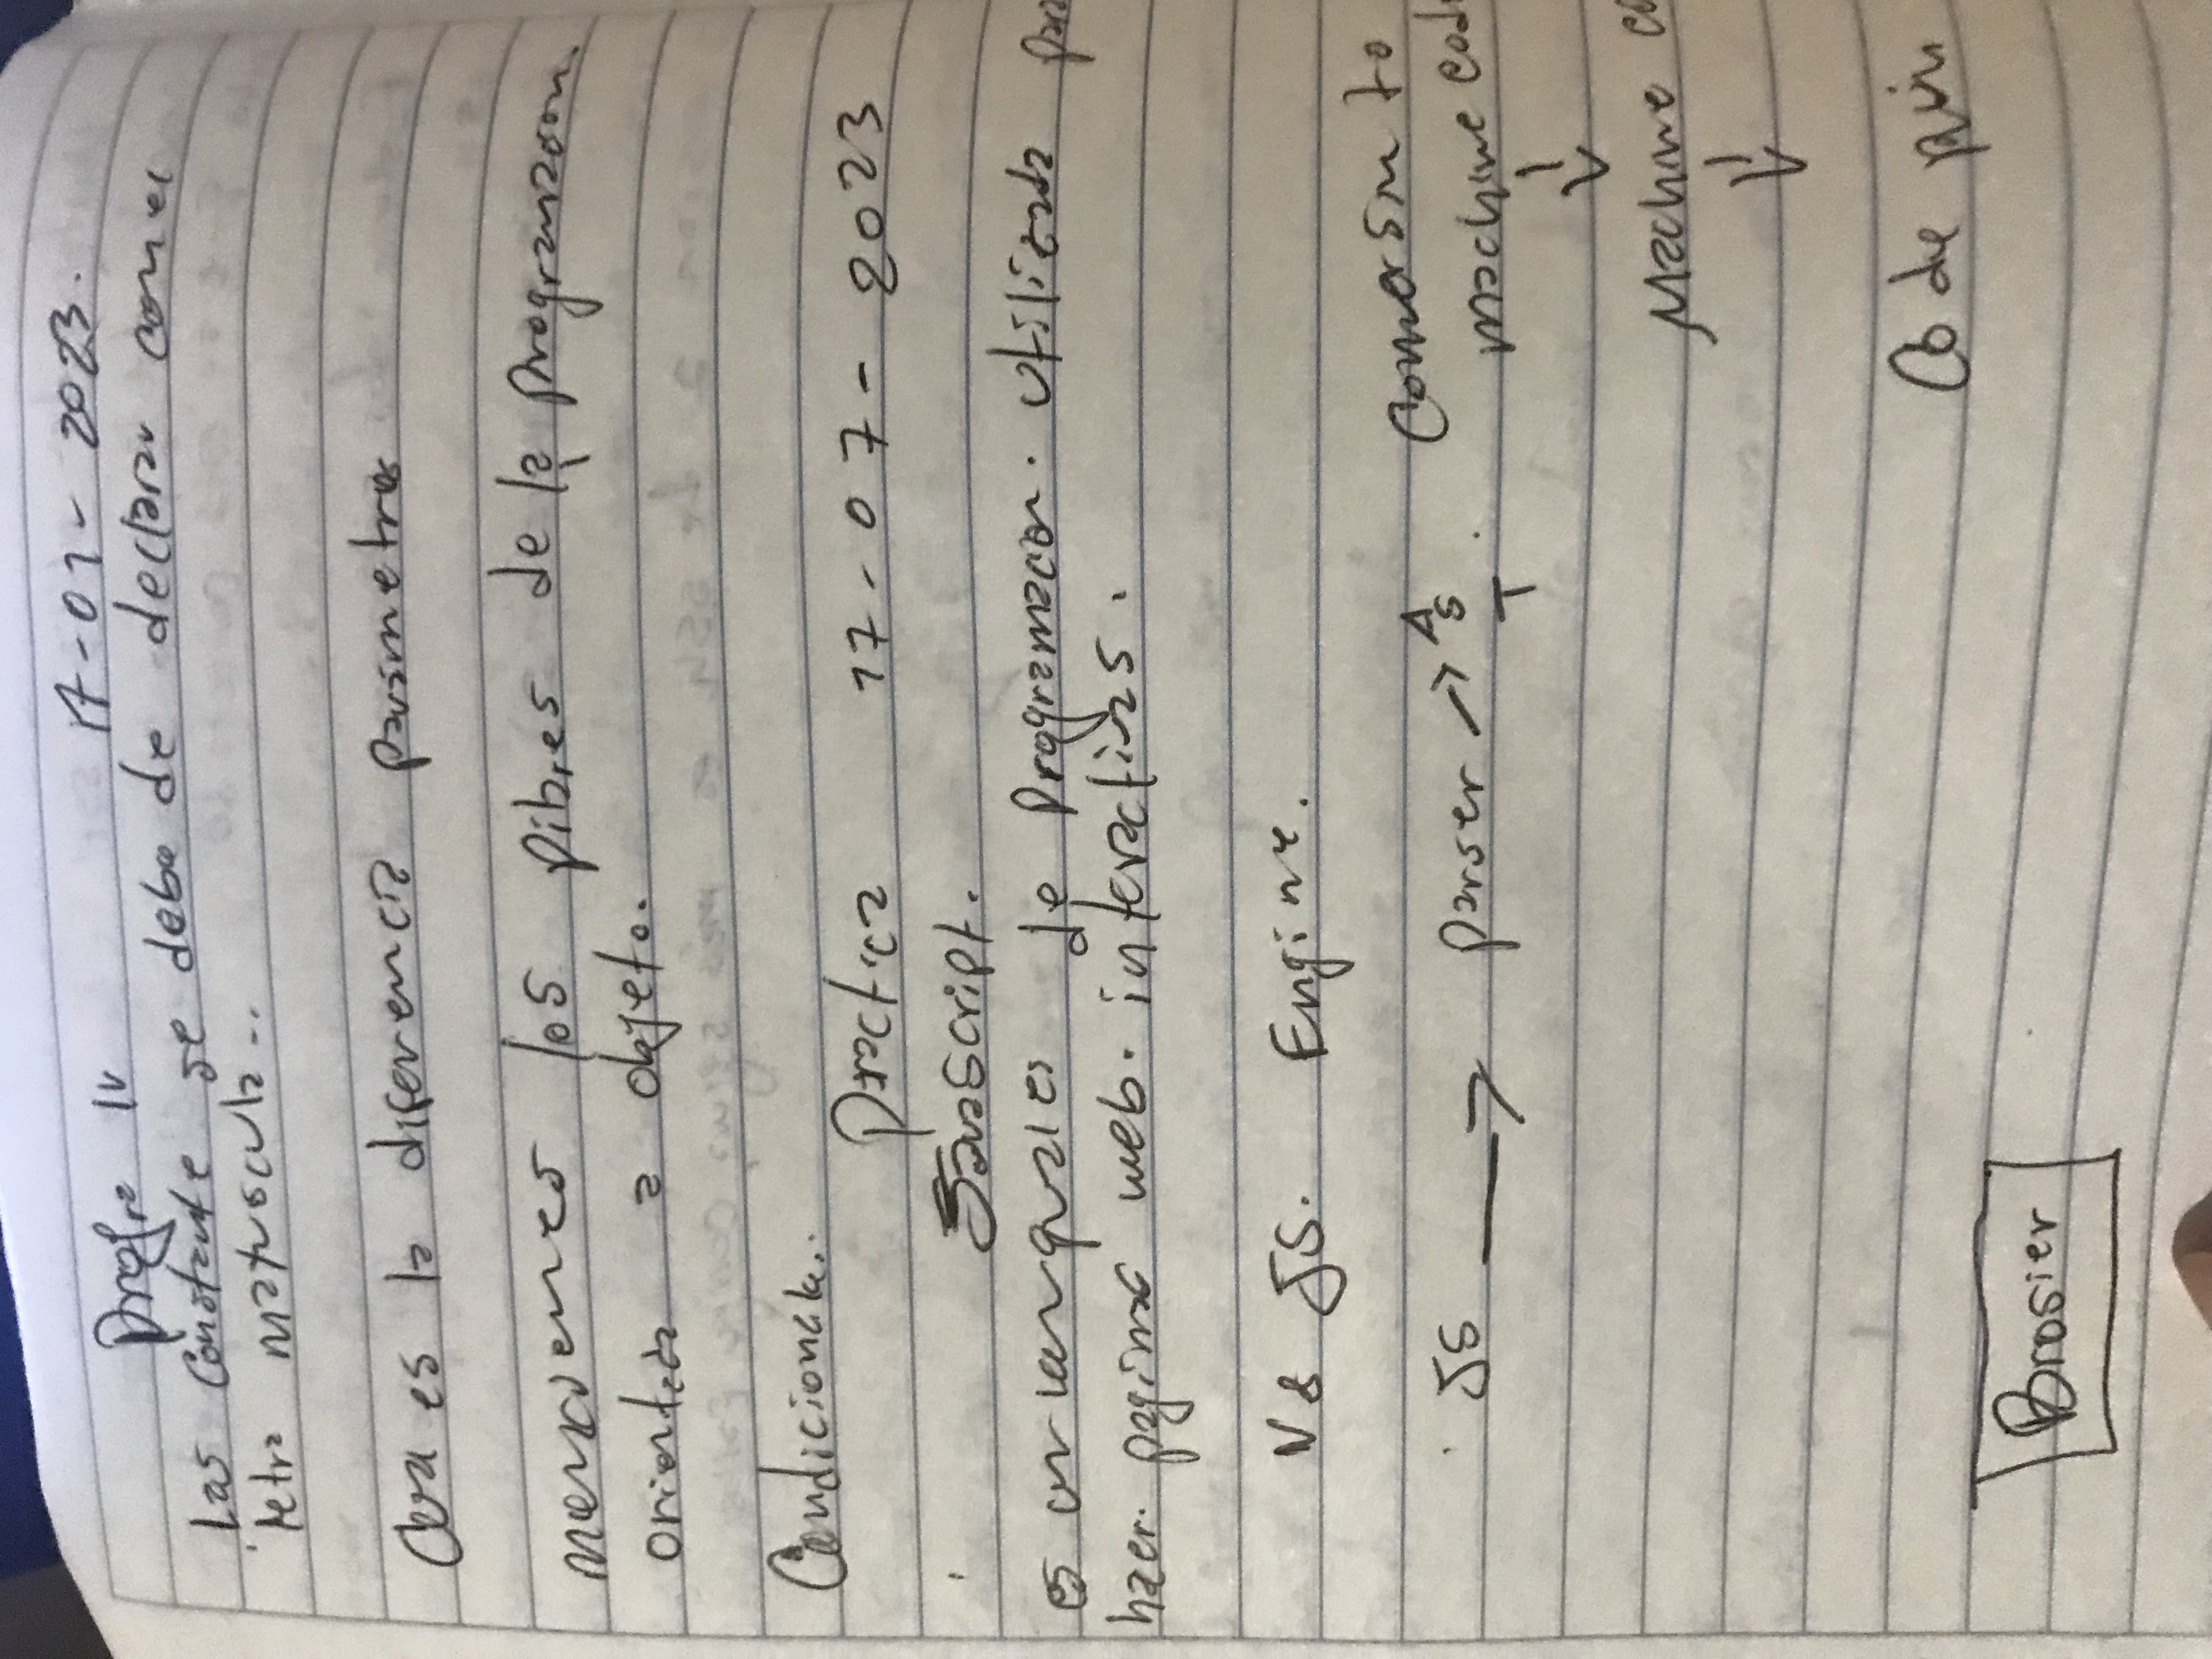 Progra IV 17-07-2023.
Las Constante se debe de declarar con el
letra mayuscula..
Cual es la diferencia parametros
los pilares de la programacion.
orientada a objeto.
Condicionale..
Practica 17-07-2023
JavaScript.
es un de Programacion. utilizada para
hacer. paginas web. interactivas.
V8 JS. Engine.
JS → parser → AST. Conversin to
machine code
↓
Machine co
↓
Code
Brosier